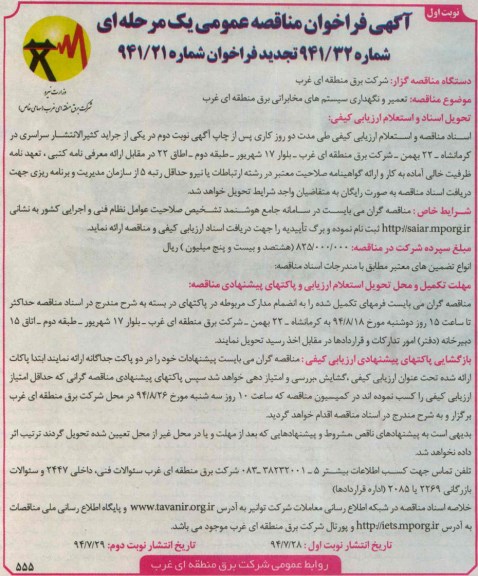 نوبت اول
آگهی فراخوان مناقصه عمومی یک مرحله ای
شماره ۹۴۱/۳۲ تجدید فراخوان شماره ۹۴۱/۲۱
وزارت نیرو
شرکت برق منطقه ای غرب (سهامی خاص)
دستگاه مناقصه گزار: شرکت برق منطقه ای غرب
موضوع مناقصه: تعمیر و نگهداری سیستم های مخابراتی برق منطقه ای غرب
تحویل اسناد و استعلام ارزیابی کیفی:
اسناد مناقصه و استعلام ارزیابی کیفی طی مدت دو روز کاری پس از چاپ آگهی نوبت دوم در یکی از جراید کثیرالانتشار سراسری در
کرمانشاه ـ ۲۲ بهمن ـ شرکت برق منطقه ای غرب ـ بلوار ۱۷ شهریور ـ طبقه دوم ـ اطاق ۲۲ در مقابل ارائه معرفی نامه کتبی ، تعهد نامه
ظرفیت خالی آماده به کار و ارائه گواهینامه صلاحیت معتبر در رشته ارتباطات یا نیرو حداقل رتبه ۵ از سازمان مدیریت و برنامه ریزی جهت
دریافت اسناد مناقصه به صورت رایگان به متقاضیان واجد شرایط تحویل خواهد شد.
شرایط خاص : مناقصه گران می بایست در سامانه جامع هوشمند تشخیص صلاحیت عوامل نظام فنی و اجرایی کشور به نشانی
http://saiar.mporg.ir ثبت نام نموده و برگ تأییدیه را جهت دریافت اسناد ارزیابی کیفی و مناقصه ارائه نماید.
مبلغ سپرده شرکت در مناقصه: ۸۲۵/۰۰۰/۰۰۰ (هشتصد و بیست و پنج میلیون ) ریال
انواع تضمین های معتبر مطابق با مندرجات اسناد مناقصه:
مهلت تکمیل و محل تحویل استعلام ارزیابی و پاکتهای پیشنهادی مناقصه:
مناقصه گران می بایست فرمهای تکمیل شده را به انضمام مدارک مربوطه در پاکتهای در بسته به شرح مندرج در اسناد مناقصه حداکثر
تا ساعت ۱۵ روز دوشنبه مورخ ۹۴/۸/۱۸ به کرمانشاه ـ ۲۲ بهمن ـ شرکت برق منطقه ای غرب ـ بلوار ۱۷ شهریور ـ طبقه دوم ـ اتاق ۱۵
دبیرخانه (دفتر) امور تدارکات و قراردادها در مقابل اخذ رسید تحویل نمایند.
بازگشایی پاکتهای پیشنهادی ارزیابی کیفی : مناقصه گران می بایست پیشنهادات خود را در دو پاکت جداگانه ارائه نمایند ابتدا پاکات
ارائه شده تحت عنوان ارزیابی کیفی ،گشایش ،بررسی و امتیاز دهی خواهد شد سپس پاکتهای پیشنهادی مناقصه گرانی که حداقل امتیاز
ارزیابی کیفی را کسب نموده اند در کمیسیون مناقصه که ساعت ۱۰ روز سه شنبه مورخ ۹۴/۸/۲۶ در محل شرکت برق منطقه ای غرب
برگزار و به شرح مندرج در اسناد مناقصه اقدام خواهد گردید.
بدیهی است به پیشنهادهای ناقص ،مشروط و پیشنهادهایی که بعد از مهلت و یا در محل غیر از محل تعیین شده تحویل گردند ترتیب اثر
داده نخواهد شد.
تلفن تماس جهت کسب اطلاعات بیشتر ۵ ـ ۳۸۲۳۲۰۰۱ـ۰۸۳ شرکت برق منطقه ای غرب سئوالات فنی، داخلی ۲۴۴۷ و سئوالات
بازرگانی ۲۲۶۹ یا ۲۰۸۵ (اداره قراردادها)
خلاصه اسناد مناقصه در شبکه اطلاع رسانی معاملات شرکت توانیر به آدرس www.tavanir.org.ir و پایگاه اطلاع رسانی ملی مناقصات
به آدرس http://iets.mporg.ir و پورتال شرکت برق منطقه ای غرب موجود می باشد.
تاریخ انتشار نوبت اول : ۹۴/۷/۲۸ تاریخ انتشار نوبت دوم: ۹۴/۷/۲۹
روابط عمومی شرکت برق منطقه ای غرب
۵۵۵